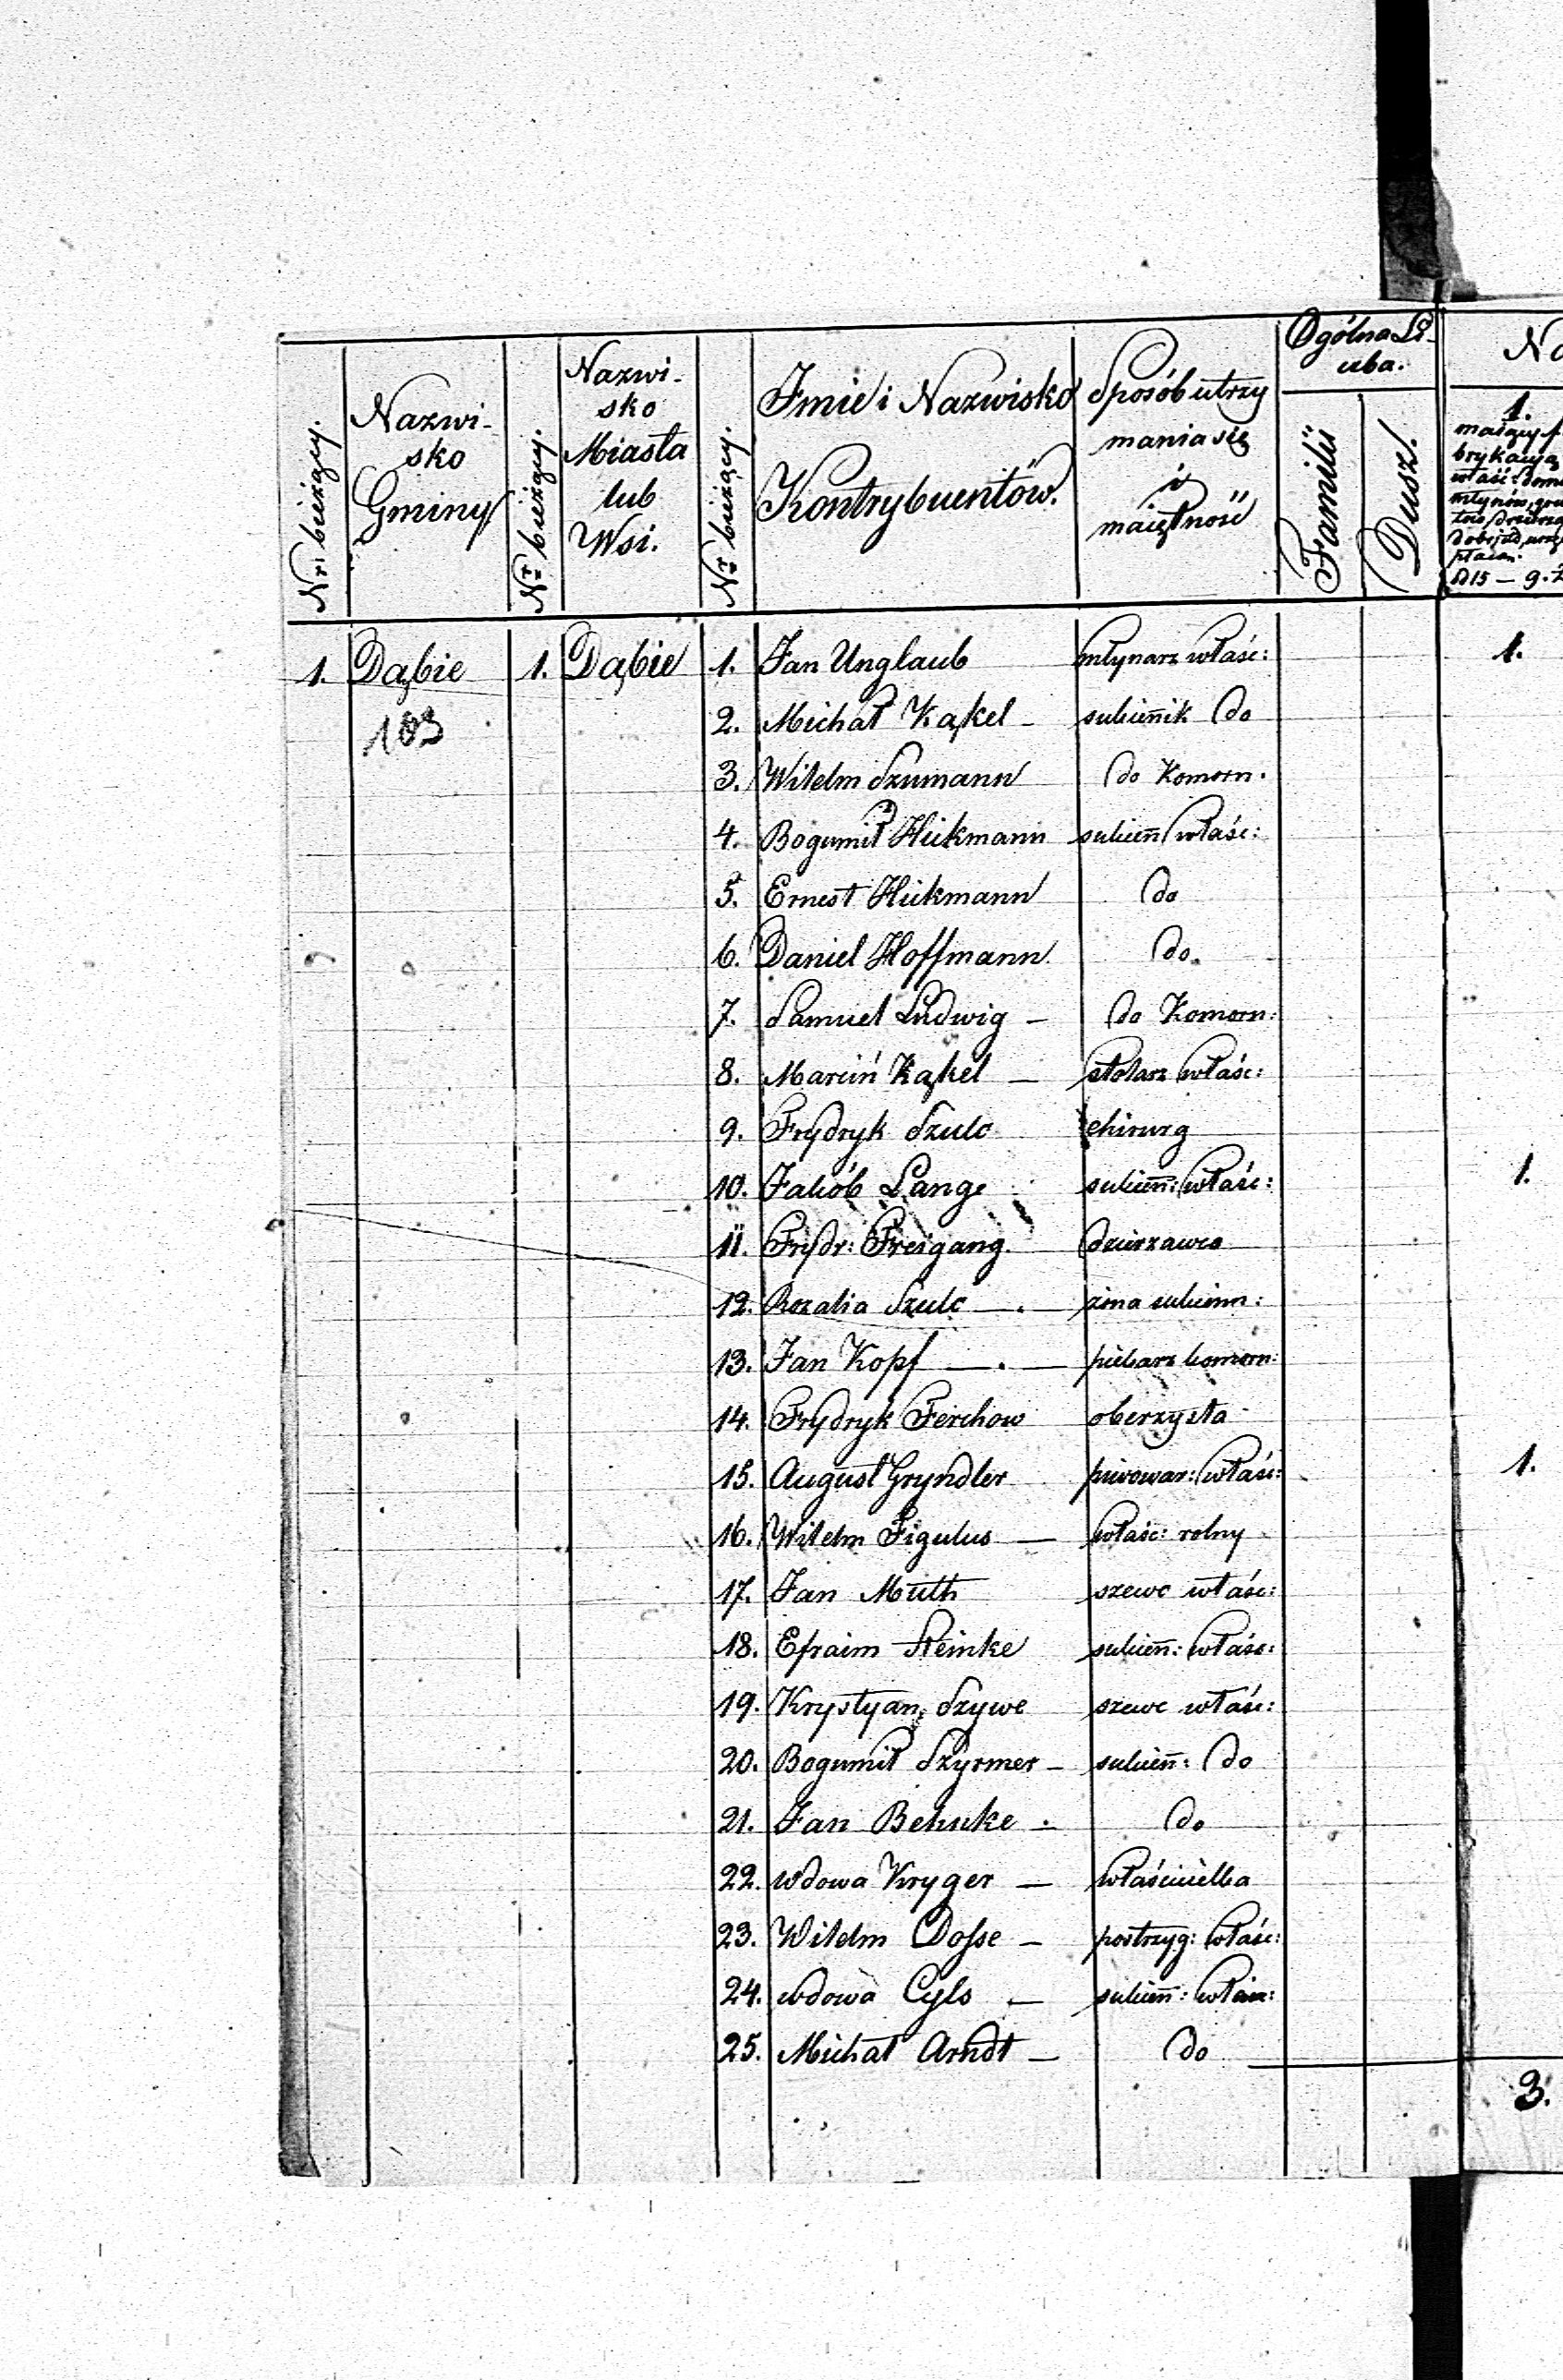 Nr: bieżący.
Nazwi-
sko
Gminy
Nr bieżący.
Nazwi-
sko
Miasta
lub
Wsi.
Nr bieżący.
Imie i Nazwisko
Kontrybuentów.
Sposób utrzy
mania się
i
maiętność
Ogólna Li-
czba.
Familii
Dusz.
1.
1. Dąbie 1. Dąbie 1. Jan Unglaub młynarz właśc: 1.
103
2. Michał Kąkel - sukiennik do
3. Wilelm Szumann do Komorn.
4. Bogumił Hickmann sukien właśc:
5. Ernest Hickmann do
6. Daniel Hoffmann do.
7. Samuel Ludwig - do Komorn:
8. Marcin Kąkel - stolarz właśc:
9. Frydryk Szulc chirurg
10. Jakób Lange sukien: właśc: 1.
11. Frydr: Freigang. dzierzawca
12. Rozalia Szulc - . - żona sukienn:
13. Jan Kopf - . - piekarz komorn:
14. Frydryk Ferchow oberzysta
15. August Gryndler piwowar: właśc: 1.
16. Wilelm Figulus - właśc: rolny
17. Jan Muth szewc właśc:
18. Efraim Steinke sukien: właśc:
19. Krystyan Szywe szewc właśc:
20. Bogumił Szyrmer - sukien: do
21. Jan Behnke - do
22. wdowa Kryger - właścicielka
23. Wilelm Dosse - postrzyg: właśc:
24. wdowa Cyls - sukien: właśc:
25. Michał Arndt - do
3.